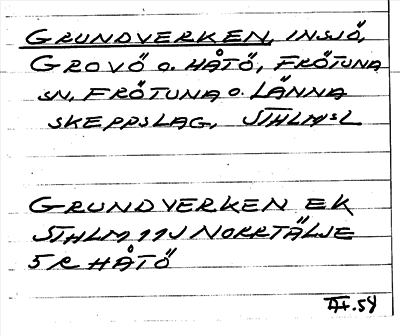 GRUNDVERKEN, INSJÖ,
GROVÖ o. HÅTÖ, FRÖTUNA
SN, FRÖTUNA o. LÄNNA
SKEPPSLAG, STHLMSL
GRUNDVERKEN EK
STHLM 11J NORRTÄLJE
5R HÅTÖ